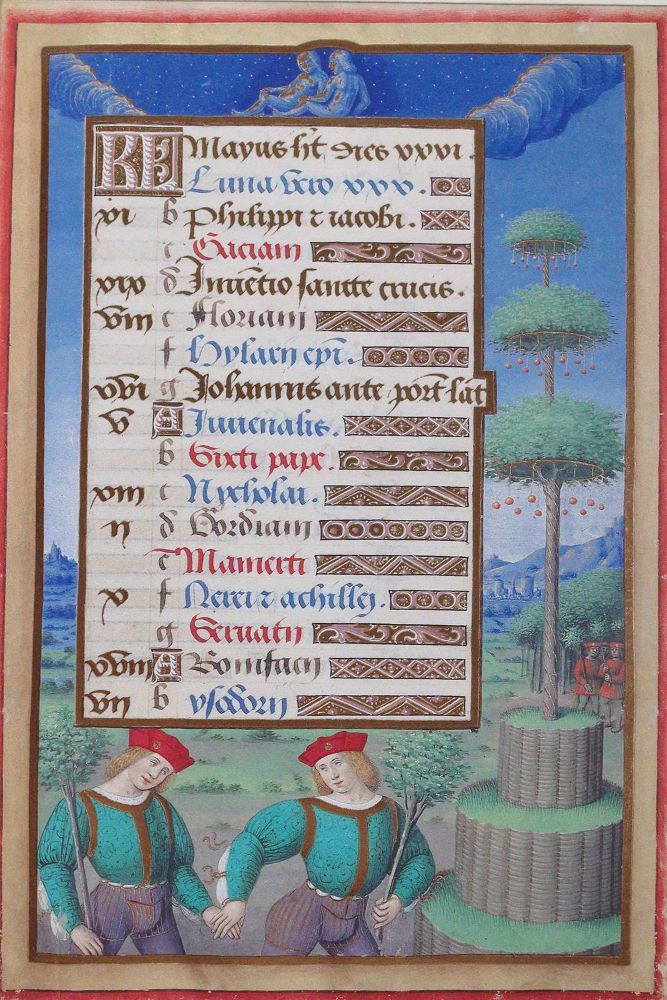 KL Mayus ht dies xxxi.
Luna vero xxx.
xi b Philippi τ iacobi.
c Gaciani
xix d Inuetio sancte crucis.
viii e Floriani
f Hylarii epi.
xvi g Johannis ante port lat
v A Iuuenalis.
b Sixti pape.
xiii c Nycholai.
ii d Gordiani
e Mamerti
x f Nerei τ achillei.
g Seruatii
xviii A Bonifacii
vii b ysodorii